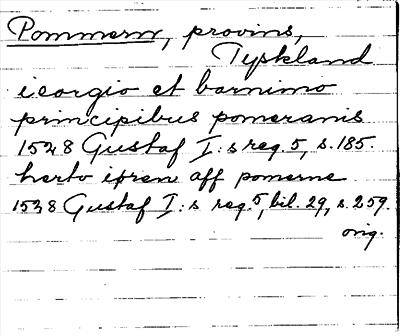 Pommern, provins,
Tyskland
ieorgio et barnimo
principibus pomeranis
1528 Gustaf I:s reg. 5, s. 185.
herto ifren aff pomerne
1528 Gustaf I:s reg. 5, bil. 29, s. 259.
orig.